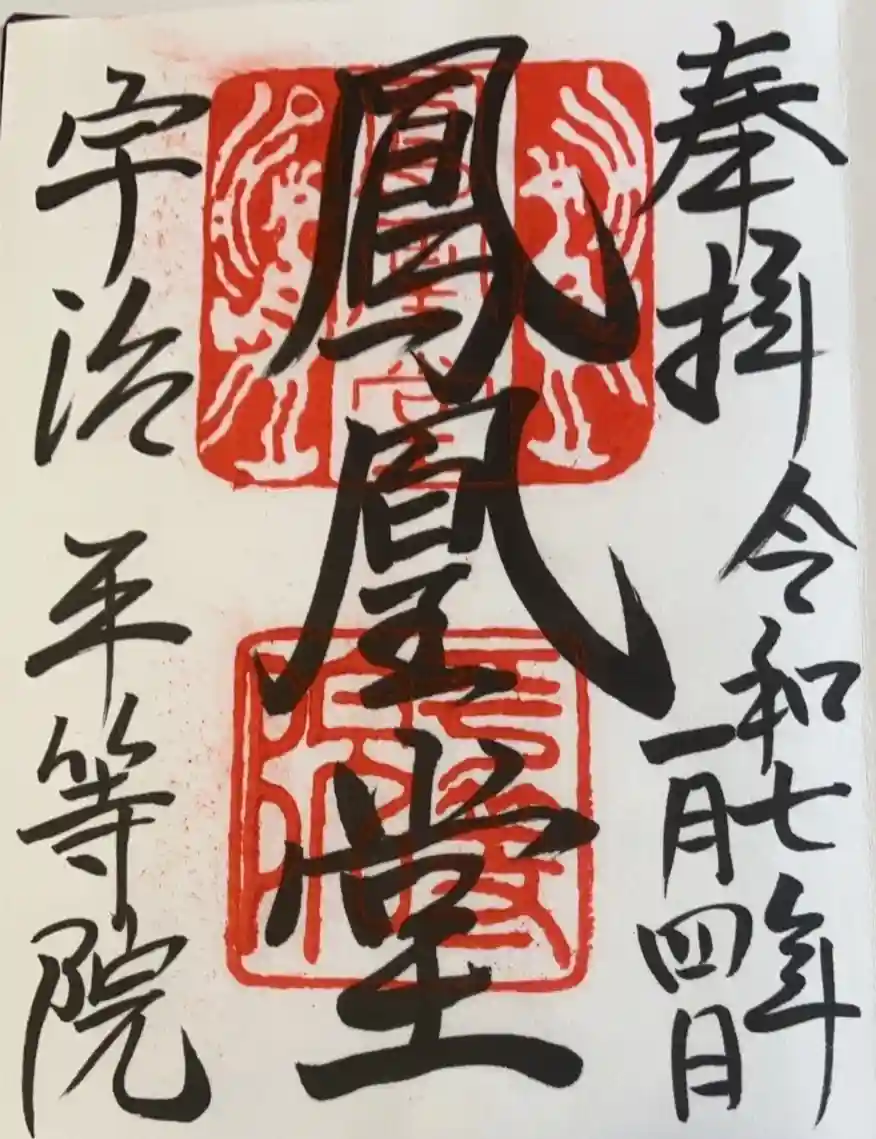 奉拝
令和七年
一月四日
鳳凰堂
鳳凰堂
宇治 平等院